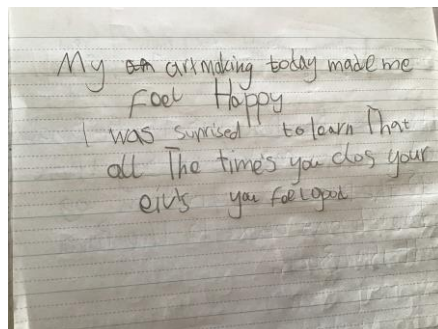 My art making today made me
Foel Happy
I was suprised to learn That
all The time's you clos your
eiv's you foel good